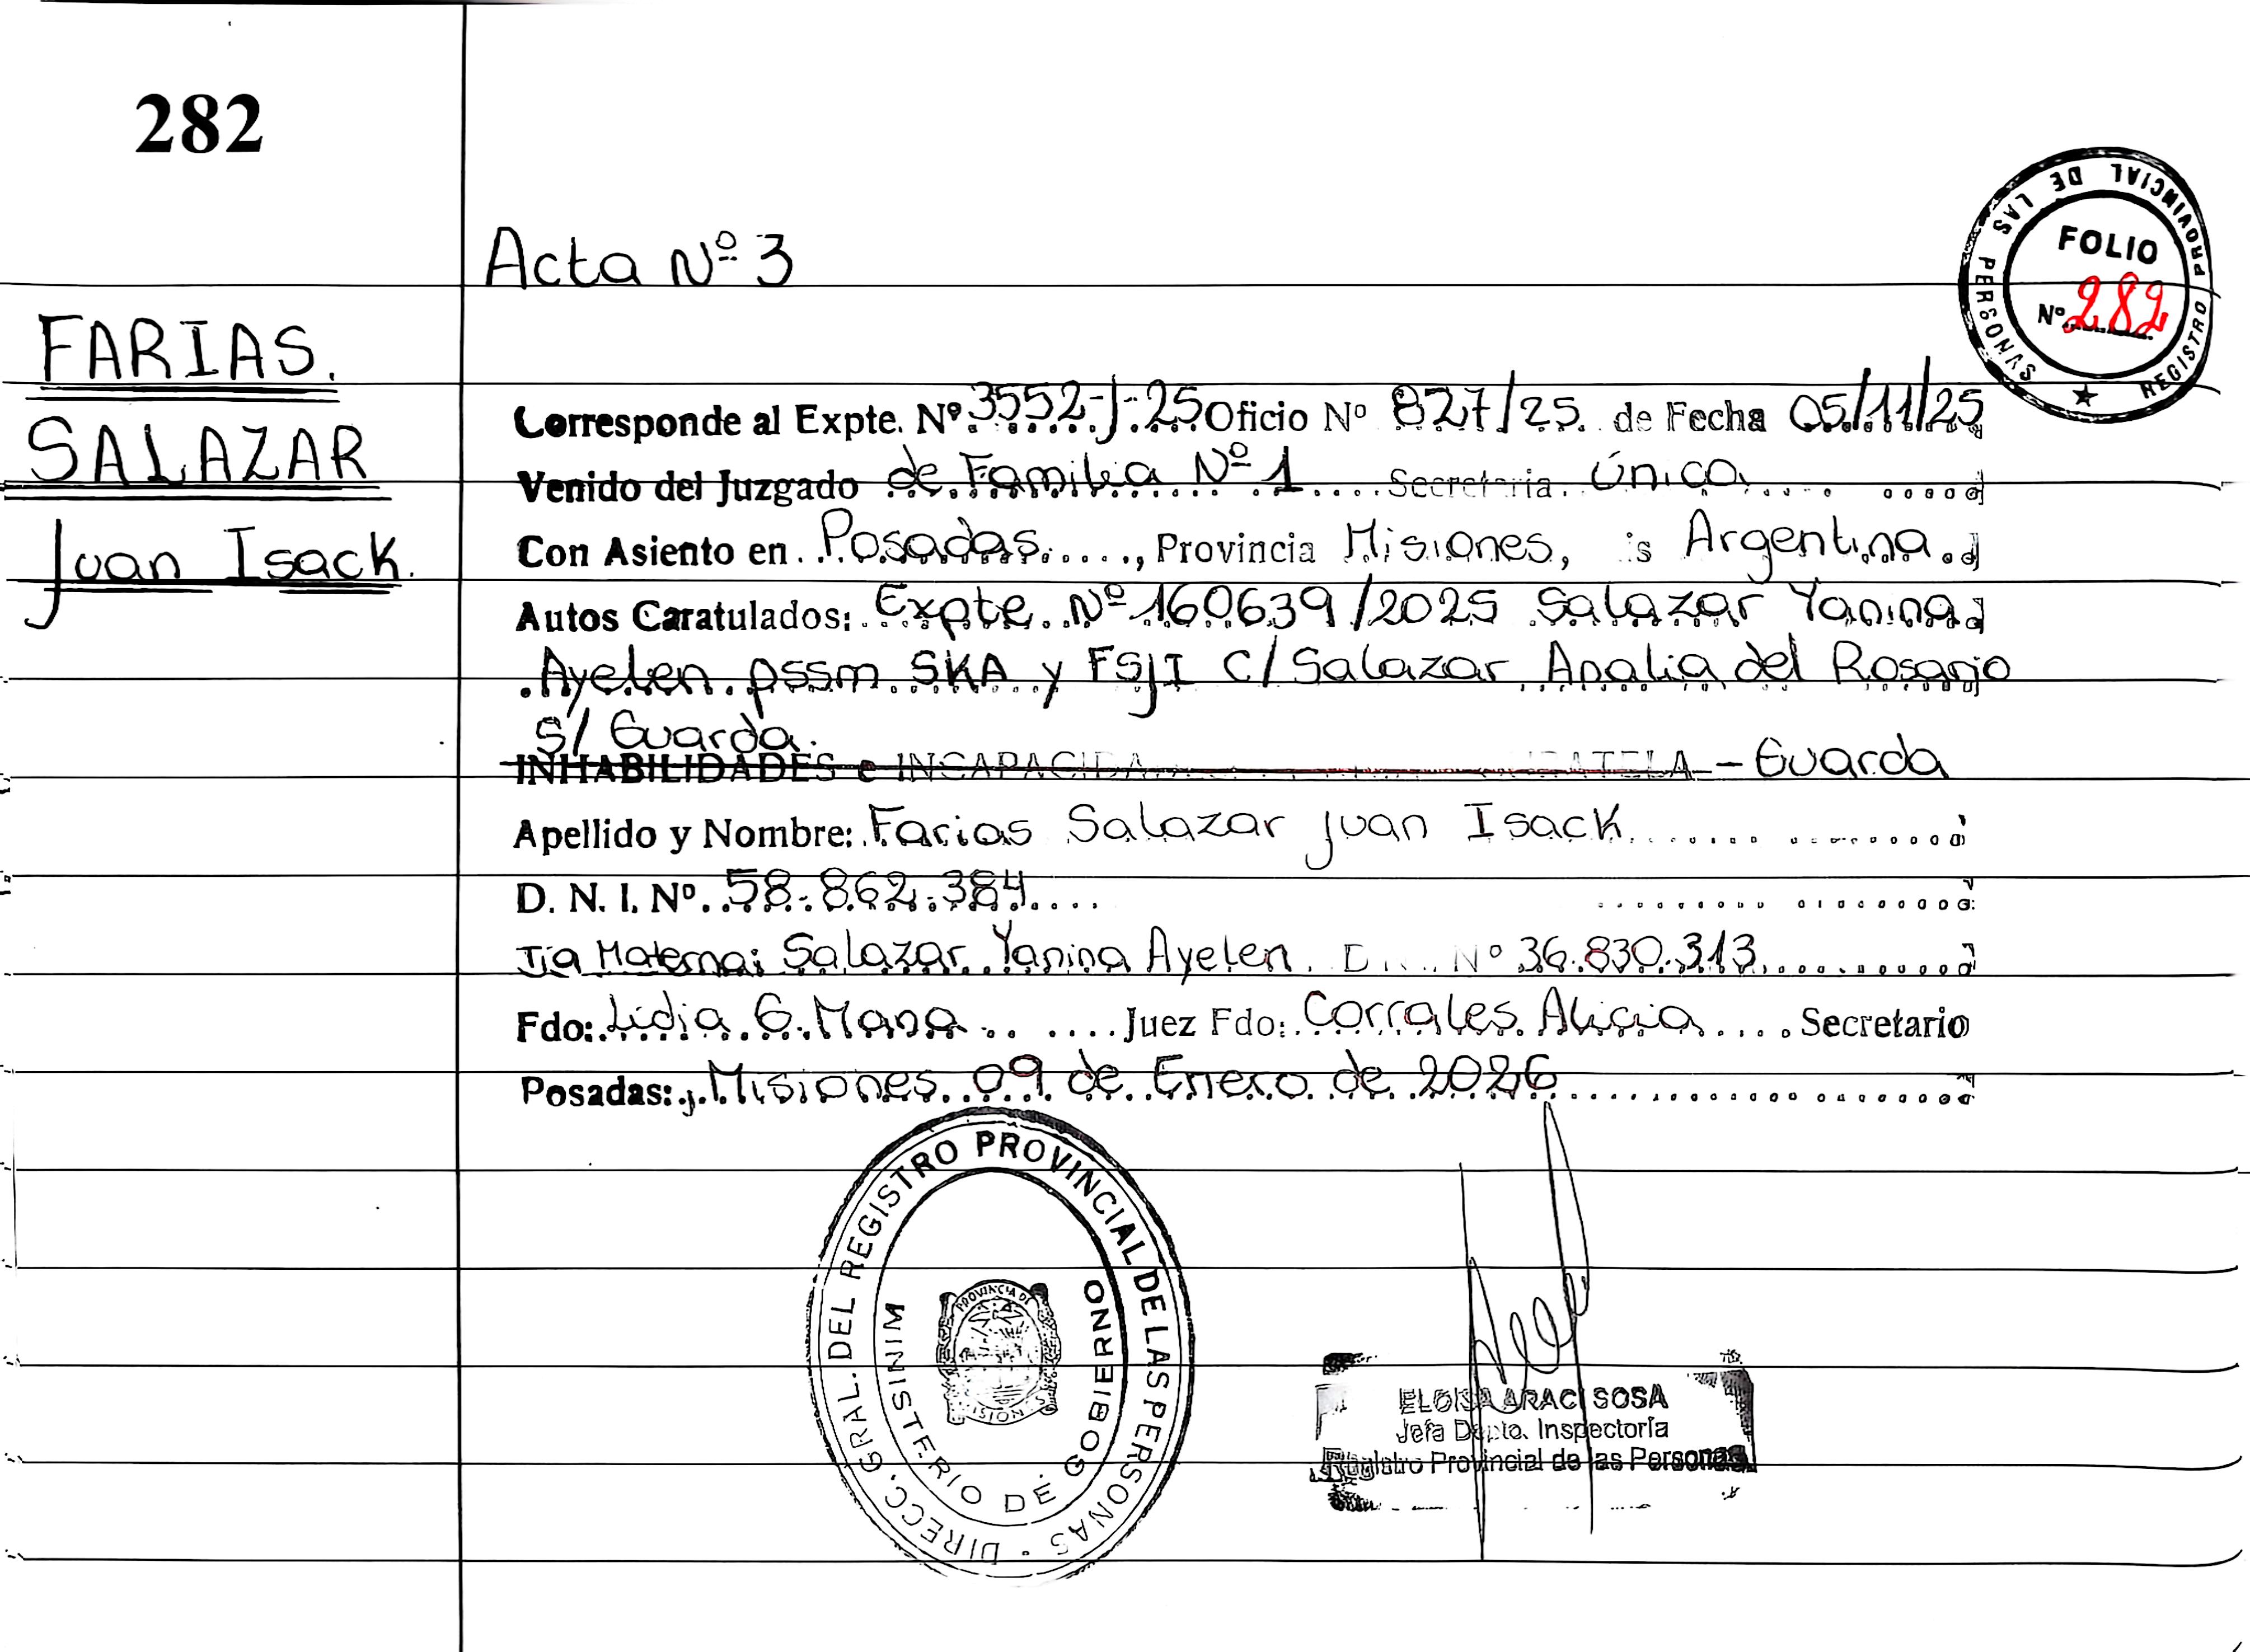 282
Acta Nº 3
FOLIO
Nº 282
REGISTRO PROVINCIAL DE LAS PERSONAS
FARIAS.
SALAZAR
Juan Isack.
Corresponde al Expte. Nº 3552-J-25 Oficio Nº 827/25 de Fecha 05/11/25
Venido del Juzgado de Familia Nº 1 Secretaria Única
Con Asiento en Posadas, Provincia Misiones, Argentina.
Autos Caratulados: Expte. Nº 160639/2025 Salazar Yanina
Ayelen pssm SKA y FSJI C/ Salazar Analia del Rosario
S/ Guarda.
INHABILIDADES e - Guarda
Apellido y Nombre: Farias Salazar Juan Isack
D. N. I. Nº 58.862.384
Tía Materna: Salazar Yanina Ayelen. Nº 36.830.313
Fdo: Lidia G. Juez Fdo: Corrales Alicia Secretario
Posadas:, Misiones 09 de Enero de 2026
DIRECC. GRAL. DEL REGISTRO PROVINCIAL DE LAS PERSONAS
MINISTERIO DE GOBIERNO
PROVINCIA DE
ELOISA ARACI SOSA
Jefa Depto. Inspectoría
Registro Provincial de las Personas